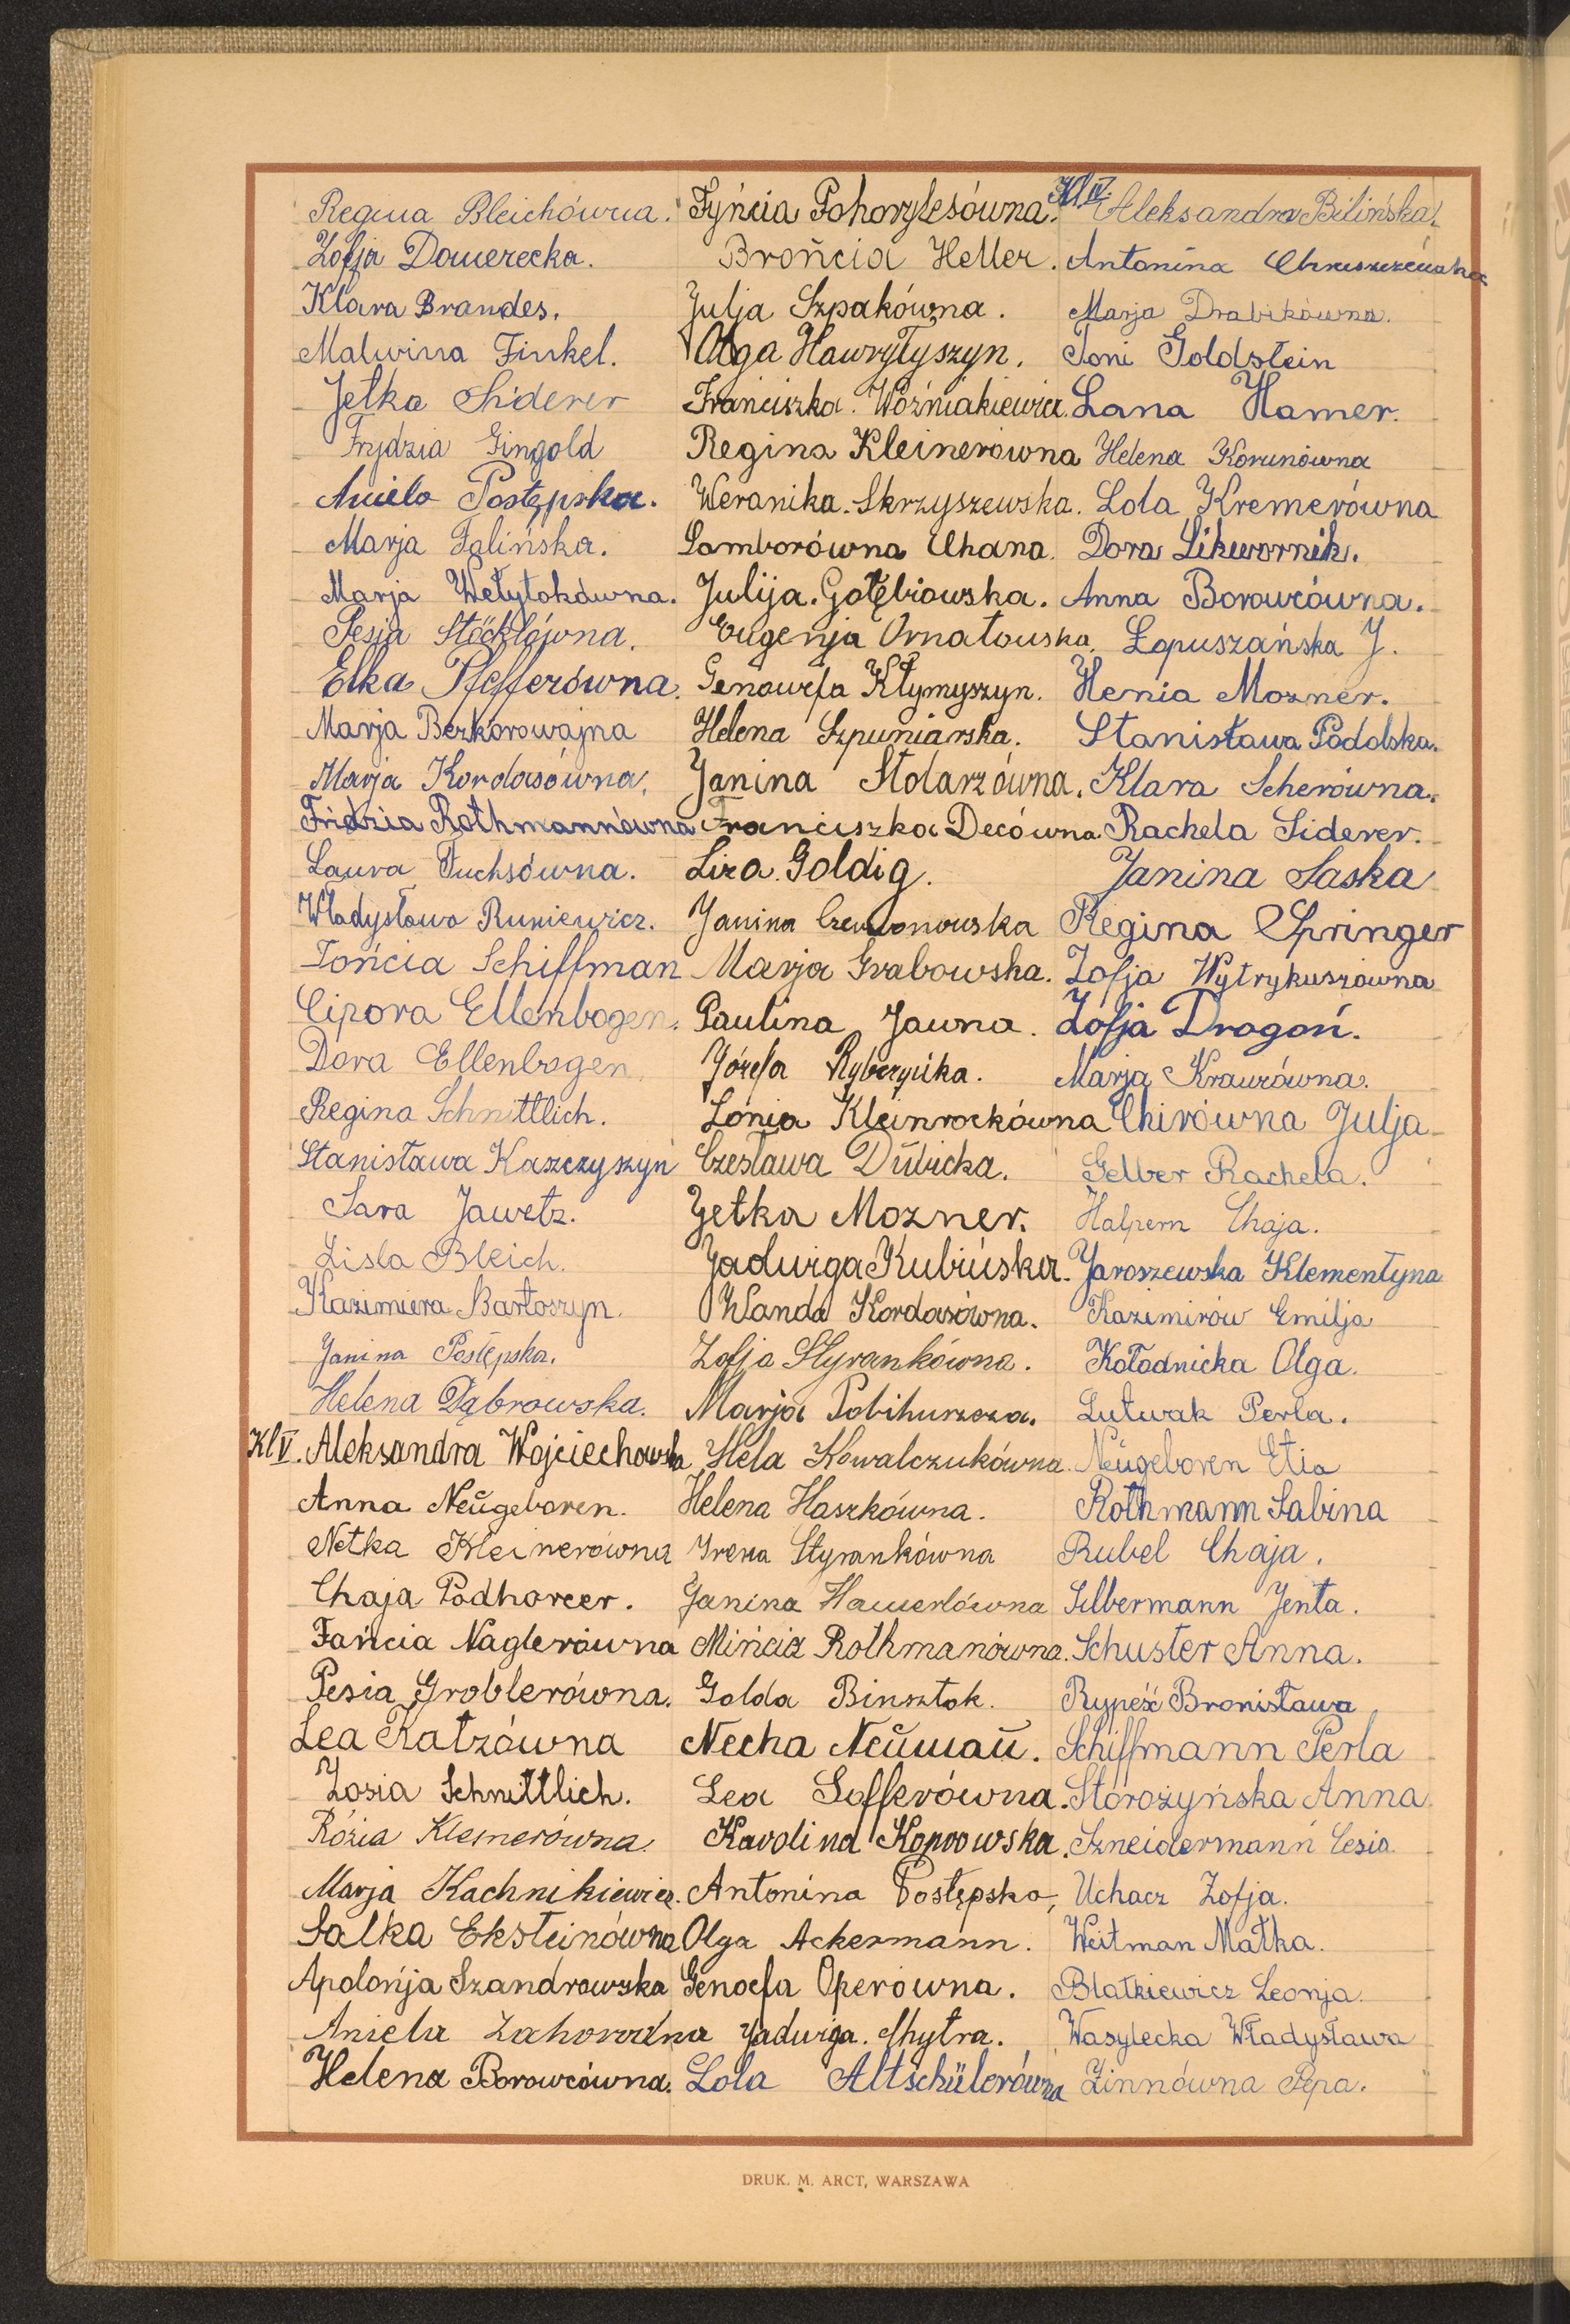 Regina Bleichówna.
Zofja Dawerecka.
Klara Brandes.
Malwina Finkel.
Jetka Siderer
Frydzia Gingold
Aniela Postępska.
Marja Falińska.
Marja Wełytokówna.
Pesia Stöcklówna.
Elka Pfefferówna.
Marja Bezkorowajna
Marja Kordasówna.
Fridzia Rothmannówna
Laura Fuchsówna.
Władysława Runiewicz.
Tońcia Schiffman
Cipora Ellenbogen.
Dora Ellenbogen
Regina Schnittlich.
Stanisława Kaszczyszyn
Sara Jawetz.
Zisla Bleich.
Kazimiera Bartoszyn.
Janina Postępska.
Helena Dąbrowska.
Kl V. Aleksandra Wojciechowska
Anna Neŭgeboren.
Netka Kleinerówna
Chaja Podhorcer.
Fańcia Naglerówna
Pesia Groblerówna.
Lea Katzówna
Zosia Schnittlich.
Rózia Klemerówna.
Marja Kachnikiewicz.
Salka Eksteinówna
Apolonja Szandrowska
Aniela Zahorodna
Helena Borowcówna.
Fyńcia Pohorylesówna.
Brońcia Heller.
Julja Szpakówna.
Olga Hawryłyszyn.
Franciszka Woźniakiewicz.
Regina Kleinerówna
Weranika Skrzyszewska.
Samborówna Chana.
Julija Gołębiowska.
Eugenja Ornatowska.
Genowefa Kłymyszyn.
Helena Szpuniarska.
Janina Stolarzówna.
Franciszka Decówna
Liza Goldig.
Janina Czerwonowska
Marja Grabowska.
Paulina Jawna.
Józefa Rybczyńka.
Lónia Kleinrockówna
Czesława Dŭbicka.
Jetka Mozner.
Jadwiga Kubińska.
Wanda Kordasówna.
Zofja Styrankówna.
Marja Pobihuszcza.
Hela Kowalczukówna.
Helena Haszkówna.
Irena Styrankówna
Janina Hawerlówna
Mińcia Rothmanówna.
Golda Binsztok.
Necha Neŭmaŭ.
Lea Sofferówna.
Karolina Koprowska.
Antonina Postępska,
Olga Ackermann.
Genoefa Operówna.
Jadwiga Chytra.
Lola Altschülerówna
Kl IV. Aleksandra Bilińska.
Antonina
Marja Drabikówna.
Toni Goldstein
Lana Hamer.
Helena Korunówna
Lola Kremerówna
Dora Likwornik.
Anna Borowcówna.
Łopuszańska J.
Henia Mozner.
Stanisława Podolska.
Klara Scherówna.
Rachela Siderer.
Janina Saska
Regina Springer
Zofja Wytrykuszówna
Zofja Dragoń.
Marja Krauzówna.
Chirówna Julja
Gelber Rachela.
Halpern Chaja.
Jaroszewska Klementyna
Kazimirów Emilja
Kołodnicka Olga.
Lutwak Perla.
Neŭgeboren Etia
Rothmann Sabina
Rubel Chaja.
Silbermann Jenta.
Schuster Anna.
Rypeść Bronisława
Schiffmann Perla
Storożyńska Anna
Szneidermann Cesia
Uchacz Zofja.
Weitman Małka.
Blatkiewicz Leonja.
Wasylecka Władysława
Zinnówna Pepa.
DRUK. M. ARCT, WARSZAWA